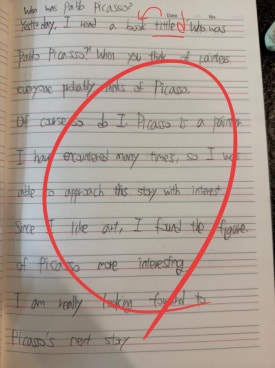 Who was Pablo Picasso?
Yesterday, I read a book titled Who was
Pablo Picasso?" When you think of painters
everyone probably thinks of Picasso.
Of course so do I Picasso is a painter
I have encountered many times, so I was
able to approach this story with interest.
Since I like art, I found the figure.
of Picasso more interesting
I am really looking forward to
Picasso's next story